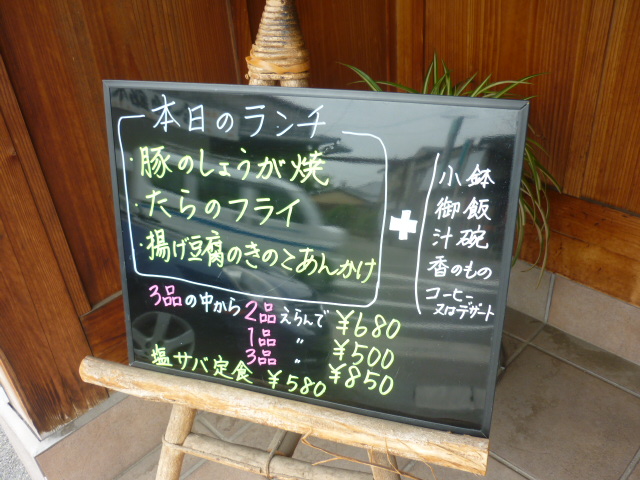 本日のランチ
・豚のしょうが焼
・たらのフライ
・揚げ豆腐のきのこあんかけ
+
小鉢
御飯
汁碗
香のもの
コーヒー
又はデザート
3品の中から2品えらんで ¥680
1品 〃 ¥500
3品 〃 ¥850
塩サバ定食 ¥580